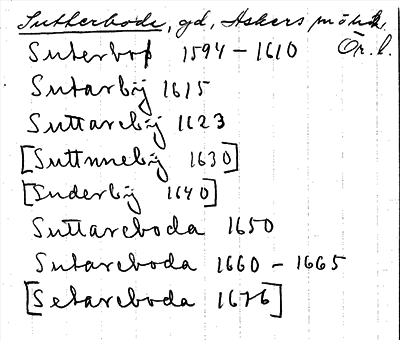 Sutterboda, gd, Askers
Ör. l.
Suterbof 1594 - 1610
Sutarbÿ 1615
Suttarebÿ 1623
[Suttnnebÿ 1630]
[Suderbÿ 1640]
Suttareboda 1650
Sutareboda 1660 - 1665
[Setareboda 1676]